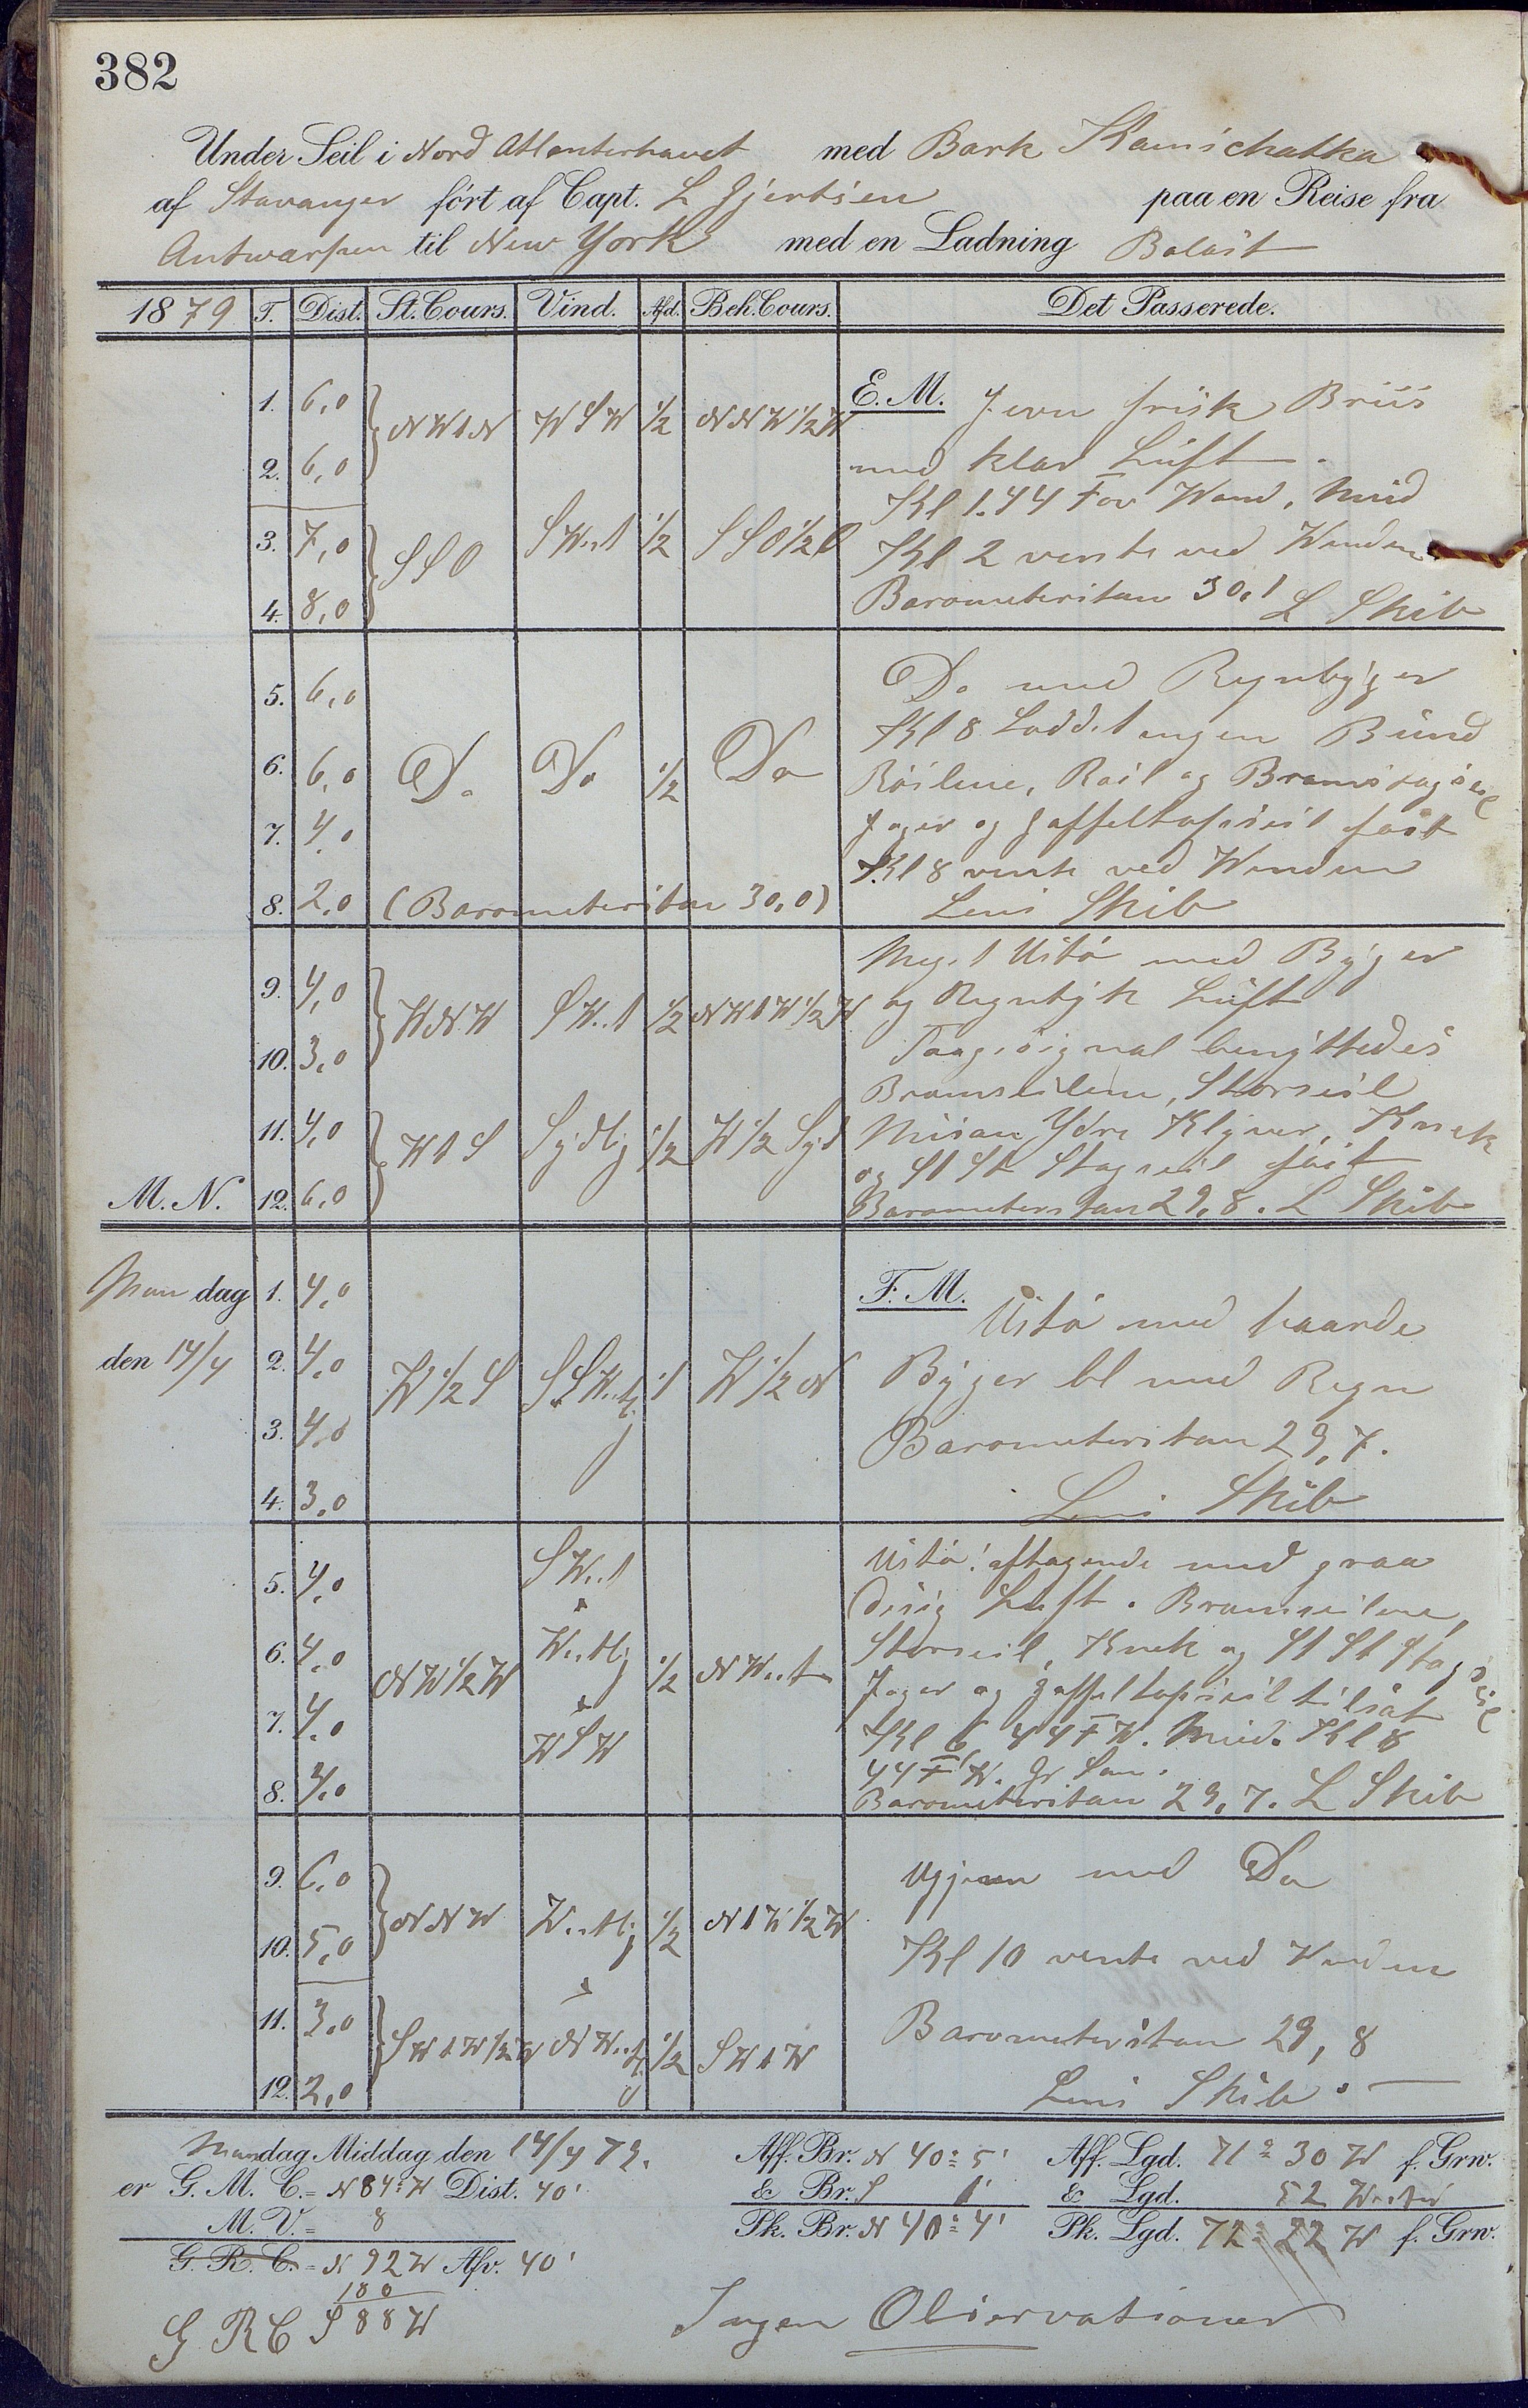 382
Under Seil i Nord Atlanterhavet med Bark Kamschatka
af Stavanger ført af Capt. L Gjertsen paa en Reise fra
Antwarpen til New York med en Ladning Balast
1879 T. Dist. St. Cours. Vind. Afd. Beh. Cours. Det Passerede.
E. M. Jevn frisk Briis
1. 6,0 NWtN WSW 1/2 NNW1/2W
med klar Luft.
2. 6,0
Kl 1.44 F ov Wand, Mud
3. 7,0 SSO SWest 1/2 SSO1/2O
Kl 2 vente ved Winden
4. 8,0 Barometerstan 30,1 L Skib
5. 6,0 Do med Regnbyger
Kl 8 Loddet ingen Bund
6. 6,0 Do Do 1/2 Do
Röilene, Röil og Bramstagseil
7. 4,0 Jager og Gaffeltopseil fast
Kl 8 vente ved Winden
8. 2,0 (Barometerstan 30,0) Lens Skib
Meget Ustö med Byger
9. 4,0 WNW SWest 1/2 NWtW1/2W
og Regntyk Luft
10. 3,0 Taagesignal benyttedes
Bramseilene, Storseil
11. 4,0 WtS Sydlig 1/2 W1/2Syd
Misan Ydre Klyver,
og St St Stagseil fast
M. N. 12. 6,0 Barometerstan 29,8. L Skib
Mandag 1. 4,0 F. M. Ustö med haarde
den 14/4 2. 4,0 W1/2S SSWestlig 1 W1/2N
Byger bl med Regn
3. 4,0 Barometerstan 29,7.
4. 3,0 Lens Skib
SWest Ustö! aftagende med graa
5. 4,0 disig Luft. Bramseilene,
6. 4,0 NW1/2W Westlig 1/2 NWest
Storseil, og St St Stagseil
Jager og Gaffeltopseil tilsat
7. 4,0 WSW Kl 6 44 F W. Mud. Kl 8
44 F W. Gr San.
8. 4,0 Barometerstan 29,7. L Skib
9. 6,0 Ujevn med Do
NNW Westlig 1/2 NtW1/2W
10. 5,0 Kl 10 vente ved Vinden
11. 3,0 Barometerstan 29,8
SWtW1/2W NWestlig 1/2 SWtW
12. 2,0 Lens Skib.
Mandag Middag den 14/4 79. Aff. Br. N 40° 5' Aff. Lgd. 71° 30 W f. Grw.
er G. M. C. = N 84° W Dist. 40' & Br. S 1' & Lgd. 52 West
M. V. = 8 Pk. Br. N 40° 4' Pk. Lgd. 72° 22 W f. Grw.
G. R. C. = N 92 W Afv. 40'
180
G R C S 88 W
Ingen Observationer